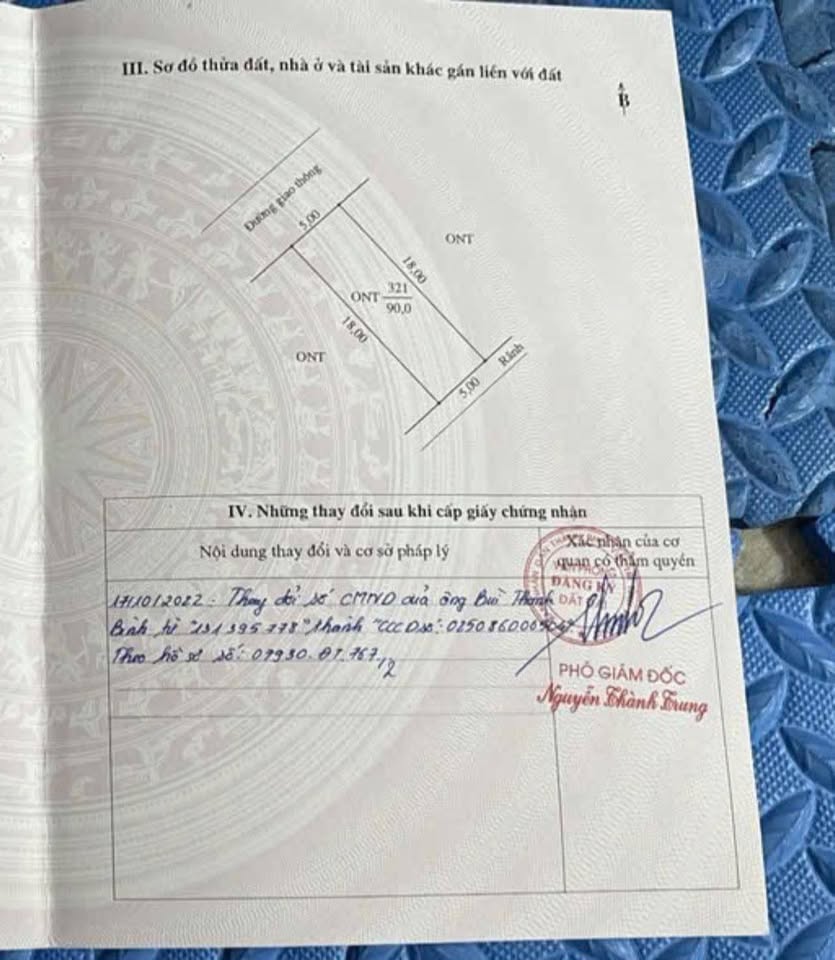 III. Sơ đồ thửa đất, nhà ở và tài sản khác gắn liền với đất
B
Đường giao thông
5,00
ONT
18,00
ONT 321
90,0
18,00
ONT
Rãnh
5,00
IV. Những thay đổi sau khi cấp giấy chứng nhận
Nội dung thay đổi và cơ sở pháp lý
Xác nhận của cơ
quan có thẩm quyền
17/10/2022. Thay đổi số CMND của ông Bùi Thanh
Bình từ "131395778" thành "CCCD số:
Theo hồ sơ số:
ĐĂNG KÝ
ĐẤT
PHÓ GIÁM ĐỐC
Nguyễn Thành Trung